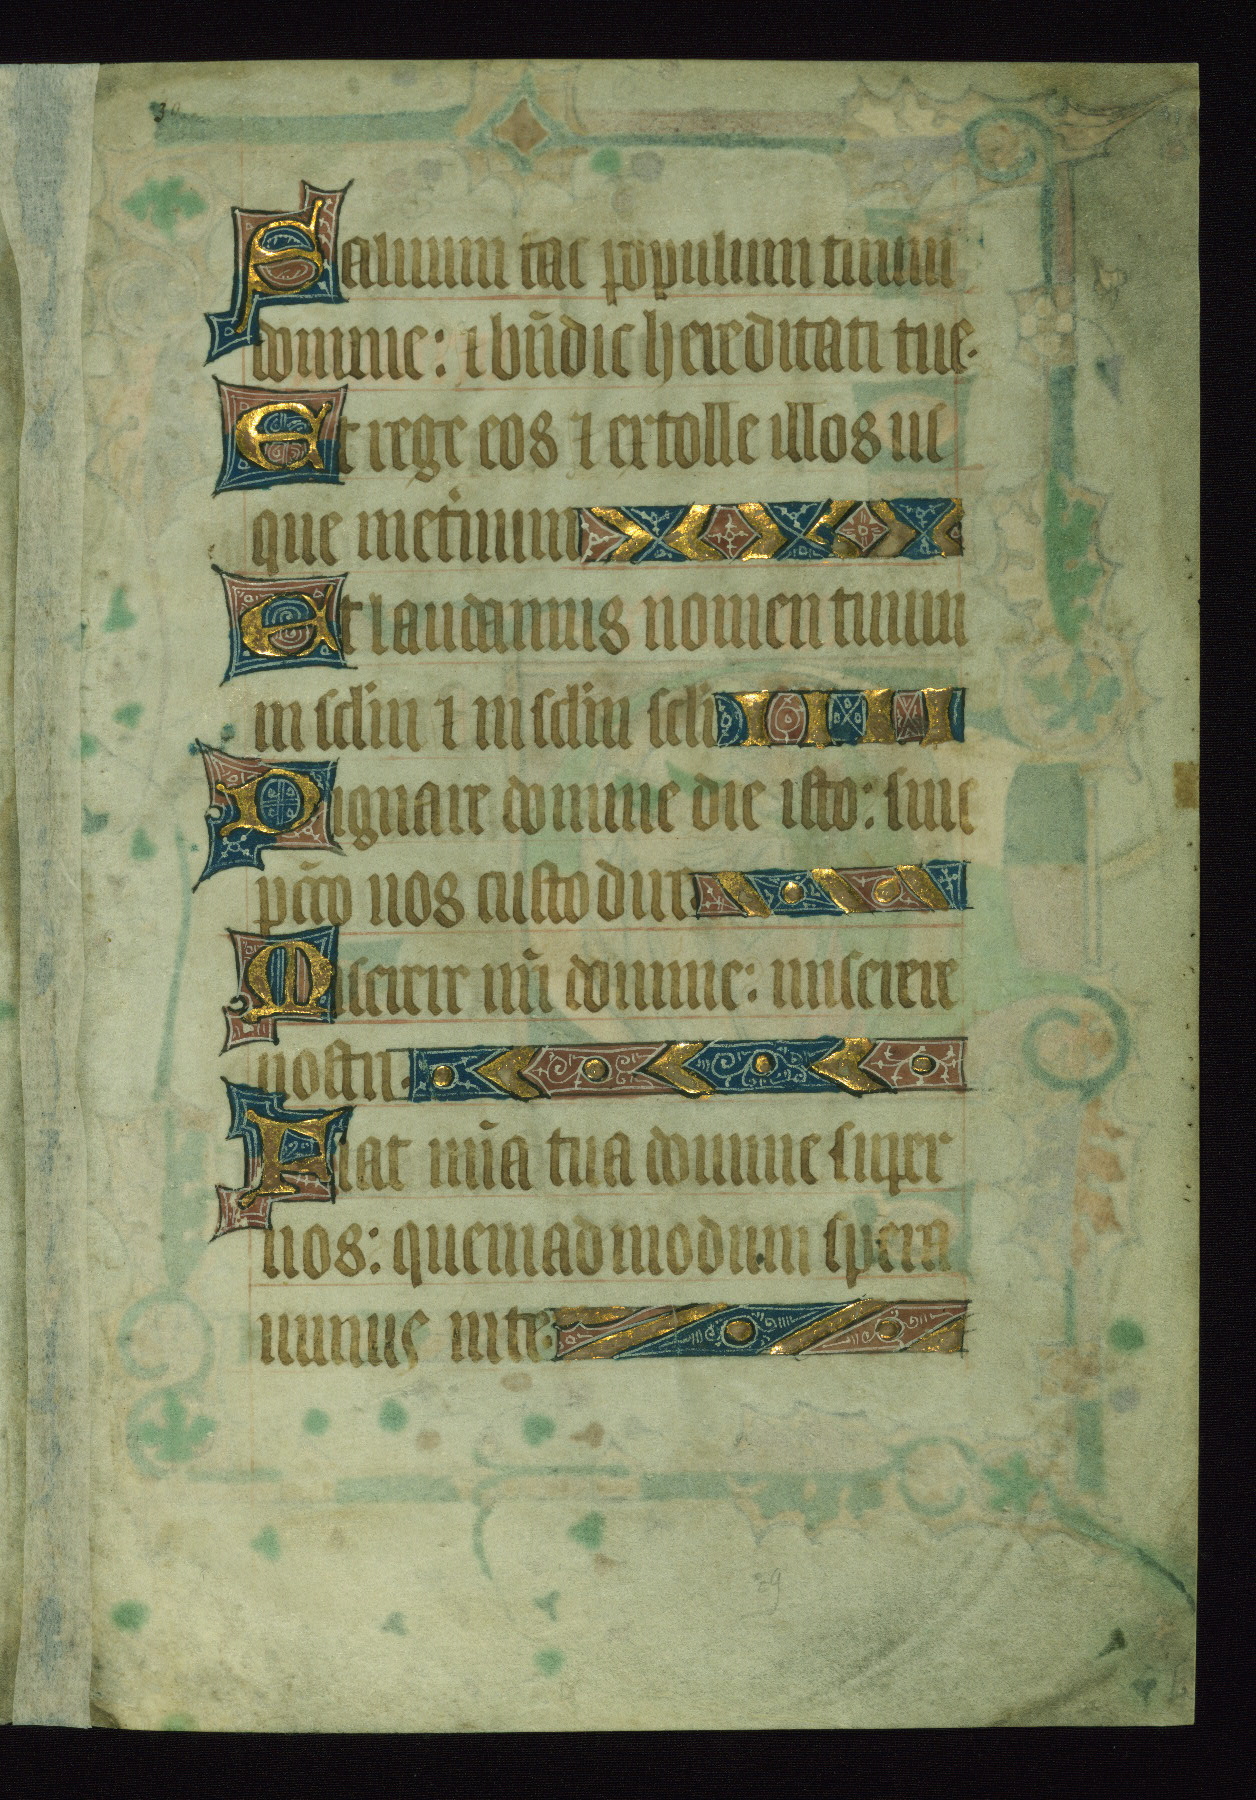 30
Saluum fac populum tuum
domine: ⁊ bn̄dic hereditati tue.
Et rege eos ⁊ extolle illos us
que ineternum
Et laudamus nomen tuum
in sclm ⁊ in sclm scli
Dignare domine die isto: sine
pcc̄o nos custodire
Miserere nr̄i domine: miserere
nostri.
Fiat mīa tua domine super
nos: quemadmodum spera
uimus inte.
29